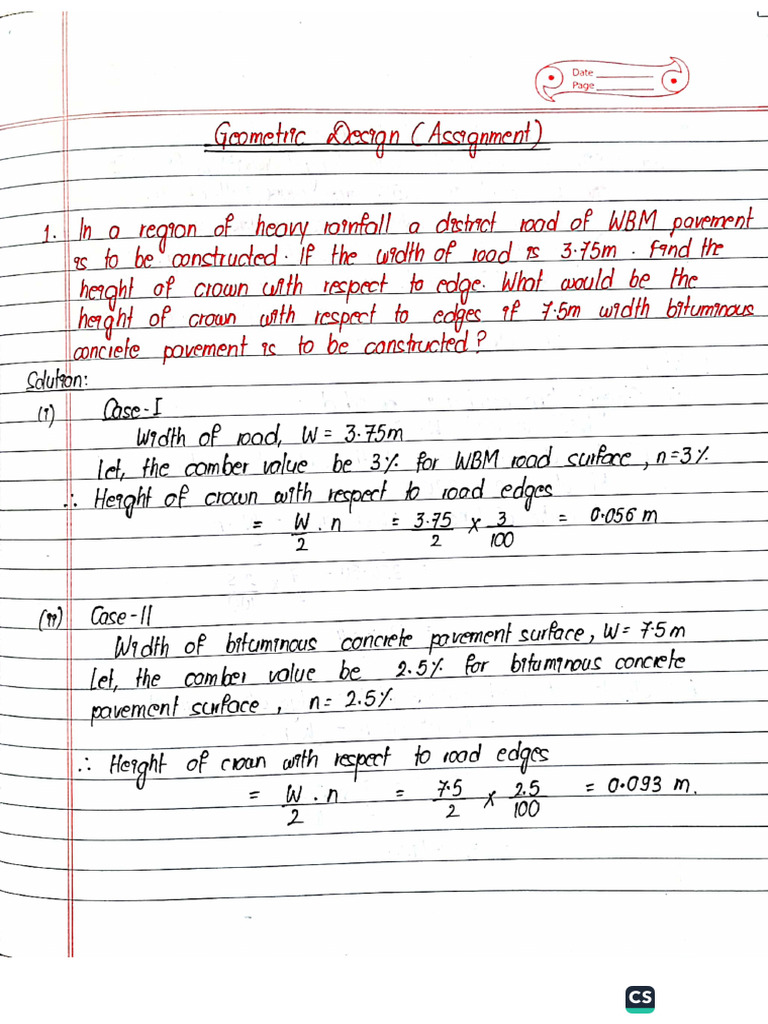 Date
Page
Geometric Design (Assignment)
1. In a region of heavy rainfall a district road of WBM pavement
is to be constructed. if the width of road is 3.75m. Find the
height of crown with respect to edge. What would be the
height of crown with respect to edges if 7.5m width bituminous
concrete pavement is to be constructed?
Solution:
(i) Case-I
Width of road, W = 3.75m
Let, the camber value be 3% for WBM road surface, n=3%
∴ Height of crown with respect to road edges
= W/2 . n = 3.75/2 x 3/100 = 0.056 m
(ii) Case-II
Width of bituminous concrete pavement surface, W= 7.5m
Let, the camber value be 2.5% for bituminous concrete
pavement surface, n= 2.5%.
∴ Height of crown with respect to road edges
= W/2 . n = 7.5/2 x 2.5/100 = 0.093 m.
CS